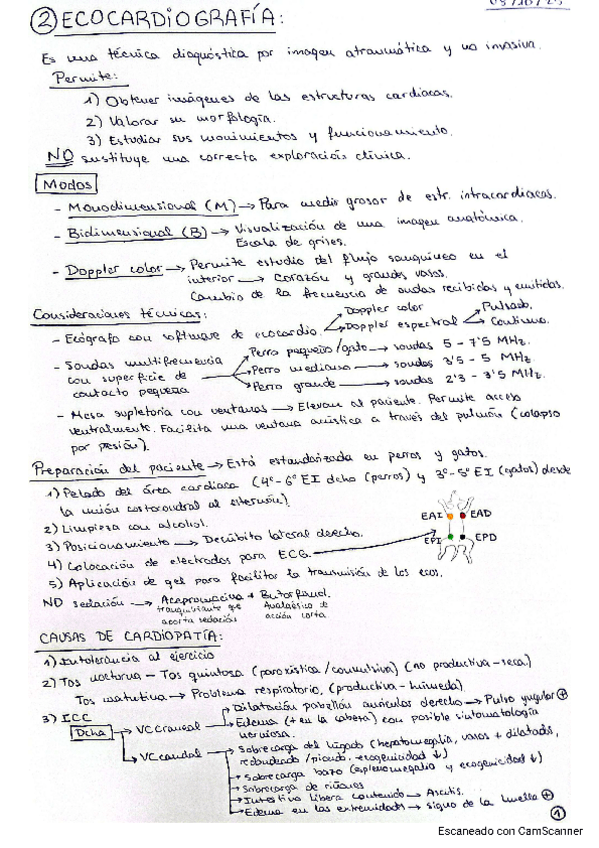 ② ECOCARDIOGRAFÍA:
Es una técnica diagnóstica por imagen atraumática y no invasiva.
Permite:
1) Obtener imágenes de las estructuras cardiacas.
2) Valorar su morfología.
3) Estudiar sus movimientos y funcionamiento.
NO sustituye una correcta exploración clínica.
Modos
- Monodimensional (M) → Para medir grosor de estr. intracardiacas.
- Bidimensional (B) → Visualización de una imagen anatómica.
Escala de grises.
- Doppler color → Permite estudio del flujo sanguíneo en el
interior → corazón y grandes vasos.
Cambio de la frecuencia de ondas recibidas y emitidas.
Consideraciones técnicas:
- Ecógrafo con software de ecocardio. → Doppler color
→ Doppler espectral → Pulsado.
→ Continuo.
- Sondas multifrecuencia
con superficie de
contacto pequeña
→ Perro pequeño/gato → sondas 5 - 7'5 MHz.
→ Perro mediano → sondas 3'5 - 5 MHz.
→ Perro grande → sondas 2'3 - 3'5 MHz.
- Mesa supletoria con ventanas → Elevan al paciente. Permite acceso
ventralmente. Facilita una ventana acústica a través del pulmón (colapso
por presión).
Preparación del paciente → Está estandarizada en perros y gatos.
1) Pelado del área cardiaca (4º-6º EI dcho (perros) y 3º-5º EI (gatos) desde
la unión costocondral al esternón).
2) Limpieza con alcohol.
3) Posicionamiento → Decúbito lateral derecho.
4) Colocación de electrodos para ECG.
EAI EAD
EPI EPD
5) Aplicación de gel para facilitar la transmisión de los ecos.
NO sedación → Acepromacina + Butorfanol.
tranquilizante que
acorta sedación
Analgésico de
acción corta
CAUSAS DE CARDIOPATÍA:
1) Intolerancia al ejercicio
2) Tos nocturna - Tos quintosa (paroxística/convulsiva) (no productiva - seca)
Tos matutina → Problema respiratorio. (productiva - húmeda)
3) ICC
Dcha
→ VC craneal → Dilatación pabellón auricular derecho → Pulso yugular ⊕
→ Edema (+ en la cabeza) con posible sintomatología
nerviosa.
→ VC caudal → Sobrecarga del hígado (hepatomegalia, vasos + dilatados,
redondeado/picudo, ecogenicidad ↓)
→ Sobrecarga bazo (esplenomegalia y ecogenicidad ↓)
→ Sobrecarga de riñones
→ Intestino libera contenido → Ascitis.
→ Edema en las extremidades → signo de la huella ⊕
①
Escaneado con CamScanner